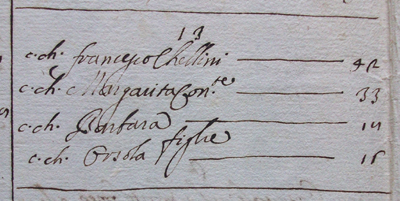 13
c. ch. Francesco Chellini 42
c. ch. Margarita Con.te 33
c. ch. Barbara 14
figlie
c. ch. Orsola 16